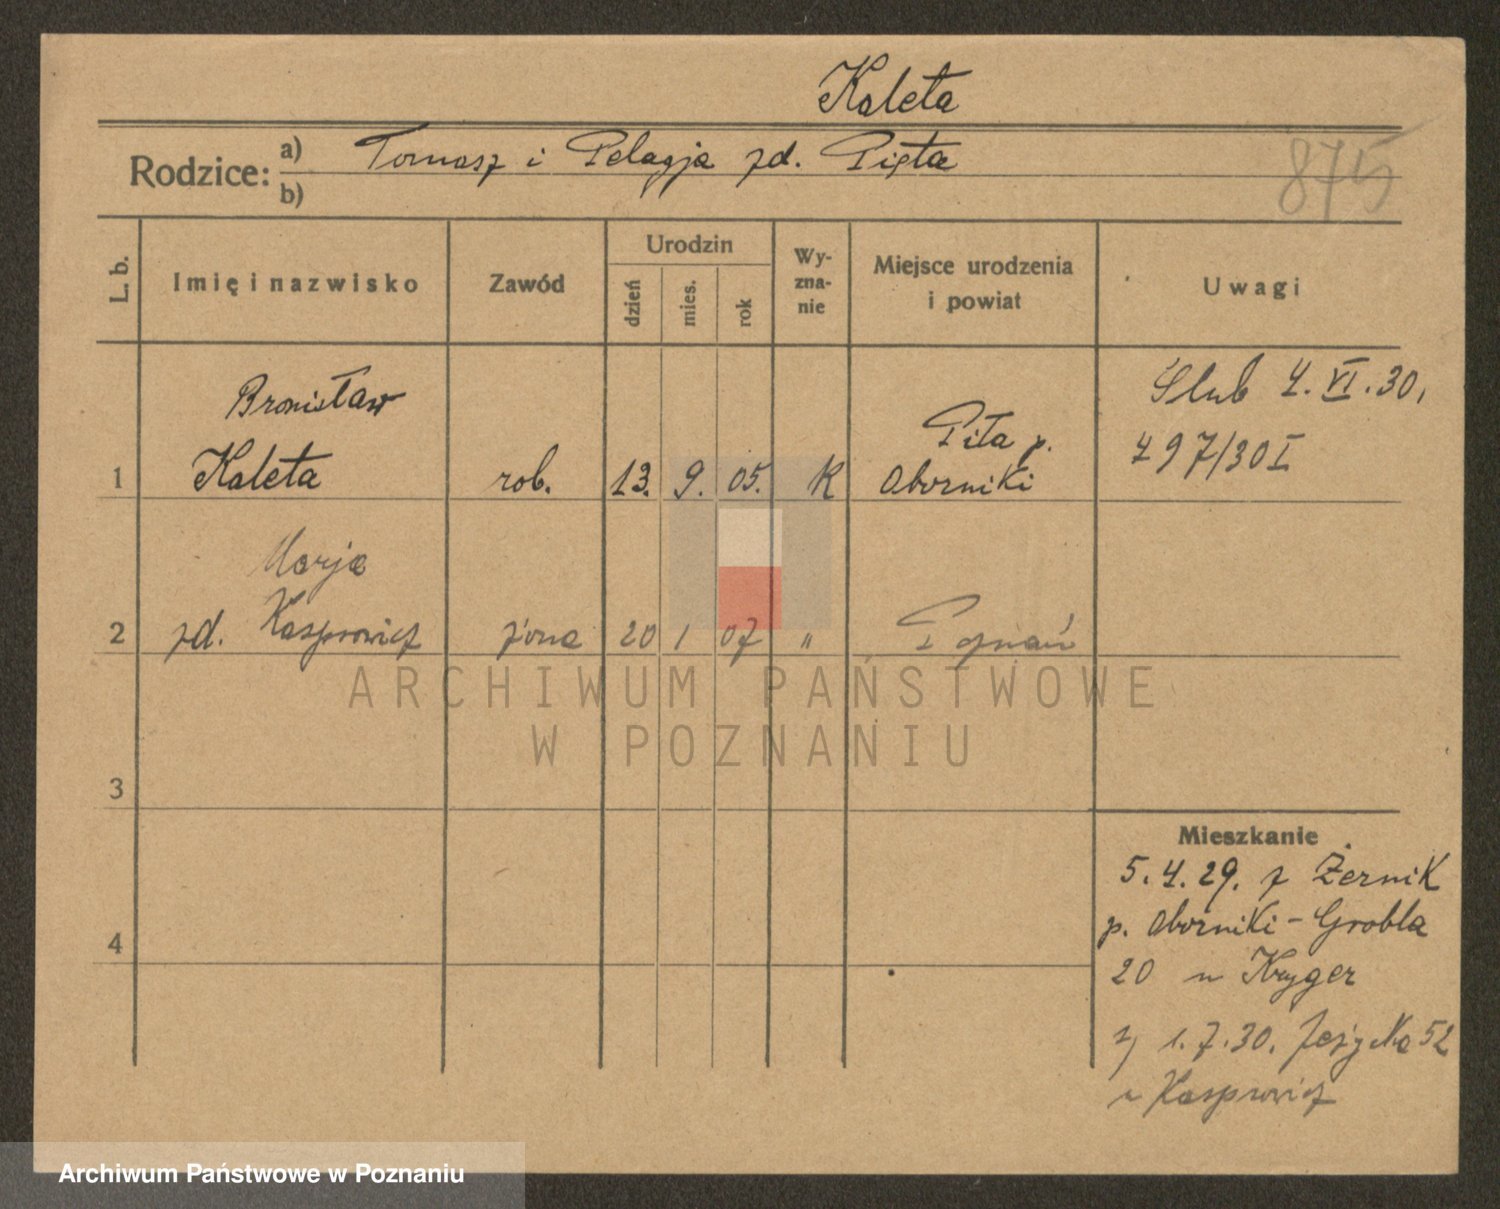 Kaleta
Rodzice: a) Tomasz i Pelagja zd. Pięta
b)
875
L. b.
Imię i nazwisko
Zawód
Urodzin
dzień
mies.
rok
Wy-
zna-
nie
Miejsce urodzenia
i powiat
Uwagi
1
Bronisław
Kaleta
rob.
13. 9. 05.
K
Piła p.
Oborniki
Slub 4. VI. 30,
497/30 I
2
Marja
zd. Kasprowicz
żona
20 1 07
"
Poznań
3
4
Mieszkanie
5.4.29. z Żernik
p. Oborniki - Grobla
20 u Kryger
2) 1.7.30. Jeżycka 52
u Kasprowicz
ARCHIWUM PAŃSTWOWE
W POZNANIU
Archiwum Państwowe w Poznaniu